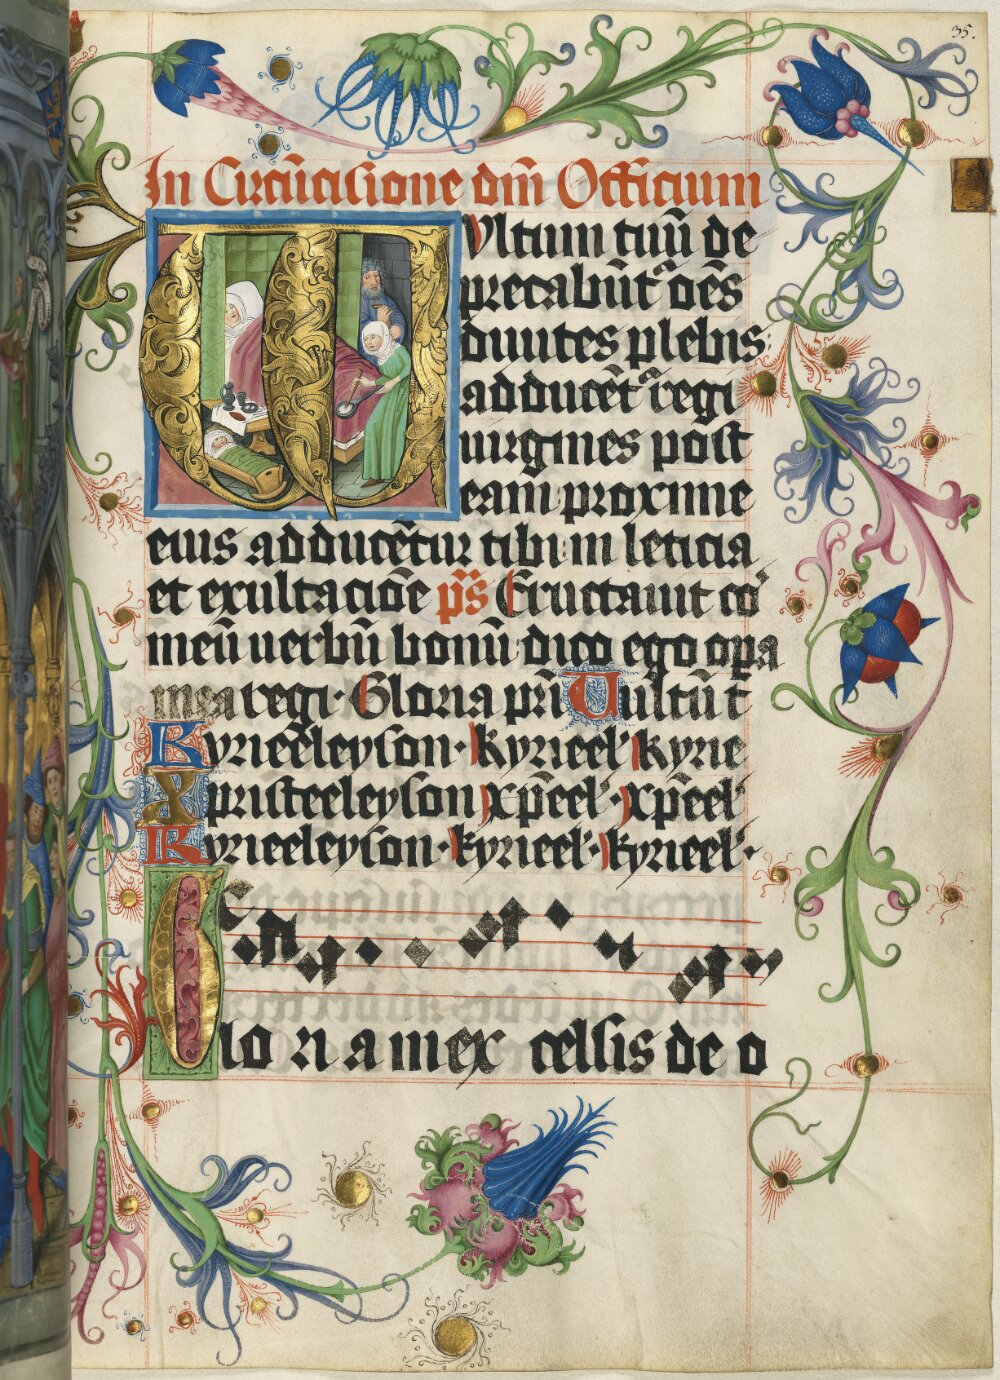 35.
In Circūcisione dm̄ Officium
VVltum tuū de
precabūtʳ oēs
diuites plebis
adducētʳ regi
uirgines post
eam proxime
eius adducētur tibi in leticia
et exultaciōe p̄s Eructauit coʳ
meū uerbū bonū dico ego opa
mea regi· Gloria pri Uultū t
Kyrieeleyson· kyrieel' kyrie
Xpristeeleyson xp̄eel'· xp̄eel'
Kyrieeleyson· kyrieel'· kyrieel'·
Glo ri a in ex celsis de o